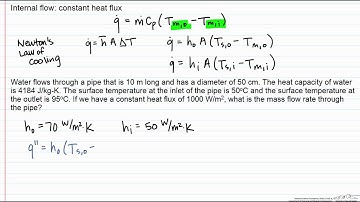 Internal flow: constant heat flux
q̇ = ṁ Cp (Tm,o - Tm,i)
Newton's Law of cooling
q̇ = h̄ A ΔT
q̇ = ho A (Ts,o - Tm,o)
q̇ = hi A (Ts,i - Tm,i)
Water flows through a pipe that is 10 m long and has a diameter of 50 cm. The heat capacity of water
is 4184 J/kg-K. The surface temperature at the inlet of the pipe is 50°C and the surface temperature at
the outlet is 95°C. If we have a constant heat flux of 1000 W/m², what is the mass flow rate through
the pipe?
ho = 70 W/m²·K hi = 50 W/m²·K
q" = ho (Ts,o -